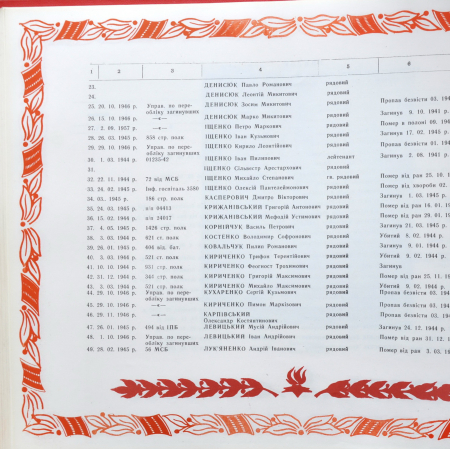 1 2 3 4 5
23. ДЕНИСЮК Павло Романович рядовий
24. ДЕНИСЮК Леонтій Микитович рядовий
25. 20. 10. 1946 р. Управ. по пере- ДЕНИСЮК Зосим Микитович рядовий Пропав безвісти 03. 194
обліку загинувших
26. 15. 10. 1946 р. —«— ДЕНИСЮК Марко Микитович рядовий Загинув 9. 10. 1941 р.
27. 2. 09. 1957 р. —«— ІЩЕНКО Петро Маркович рядовий Помер в полоні 09. 194
28. 26. 03. 1945 р. 858 стр. полк ІЩЕНКО Іван Кузьмович рядовий Загинув 17. 02. 1945
29. 29. 10. 1946 р. Управ. по пере- ІЩЕНКО Кирило Леонтійович рядовий Пропав безвісти 01. 194
обліку загинувших
30. 1. 03. 1944 р. 01235-42 ІЩЕНКО Іван Пилипович лейтенант Загинув 2. 08. 1941 р.
31. ІЩЕНКО Сільвестр Арестархович рядовий
32. 22. 11. 1944 р. 72 від МСБ ІЩЕНКО Михайло Степанович гв. рядовий Помер від ран 25. 10. 1
33. 24. 02. 1945 р. Інф. госпіталь 1580 ІЩЕНКО Олексій Пантелеймонович рядовий Помер від хвороби 02.
34. 03. 1945 р. 196 стр. полк КАСПЕРОВИЧ Дмитро Вікторович рядовий Загинув 1. 03. 1945 р.
35. 24. 03. 1945 р. п/п КРИЖАНІВСЬКИЙ Григорій Антонович рядовий Помер від ран 14. 01. 1
36. 12. 06. 1944 р. п/п 24017 КРИЖАНІВСЬКИЙ Мефодій Устимович рядовий Помер від ран 29. 01. 19
37. 4. 05. 1945 р. 1426 стр. полк КОРНІЙЧУК Василь Петрович рядовий Загинув 21. 03. 1945 р.
38. 5. 03. 1944 р. 621 ст. полк КОСТЕНКО Володимир Софронович рядовий Убитий 9. 02. 1944 р.
39. 26. 01. 1945 р. 404 від. бат. КОВАЛЬЧУК Пилип Романович рядовий Загинув 9. 01. 1944 р.
40. 3. 03. 1946 р. 521 ст. полк КИРИЧЕНКО Трифон Терентійович рядовий Убитий 9. 02. 1944 р.
41. 10. 12. 1944 р. стр. полк КИРИЧЕНКО Феогност Трохимович рядовий Загинув
42. 31. 12. 1943 р. стр. полк КИРИЧЕНКО Григорій Максимович рядовий Помер від ран 25. 11. 19
43. 3. 03. 1944 р. 521 ст. полк КИРИЧЕНКО Михайло Максимович рядовий Убитий 9. 02. 1944 р.
44. 9. 10. 1946 р. Управ. по пере- КУХАРЕНКО Сергій Кузьмович рядовий Пропав безвісти 03. 1945
обліку загинувших
45. 28. 10. 1946 р. —«— КИРИЧЕНКО Пимон Маркіхович рядовий Пропав безвісти 03. 194
46. 28. 11. 1946 р. —«— КАРПІВСЬКИЙ рядовий Пропав безвісти 03. 194
Олександр Костянтинович
47. 26. 01. 1945 р. 494 від ІПБ ЛЕВИЦЬКИЙ Мусій Андрійович рядовий Загинув 24. 12. 1944 р.
48. 1. 10. 1946 р. Управ. по пере- ЛЕВИЦЬКИЙ Іван Андрійович рядовий Помер від ран 31. 12. 1
обліку загинувших
49. 28. 02. 1945 р. 56 МСБ ЛУК'ЯНЕНКО Андрій Іванович рядовий Помер від ран 3. 03. 194